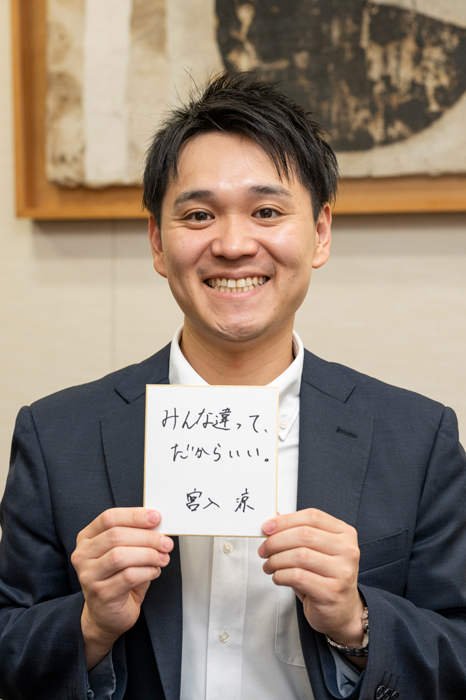 みんな違って、
だからいい。
宮入 涼